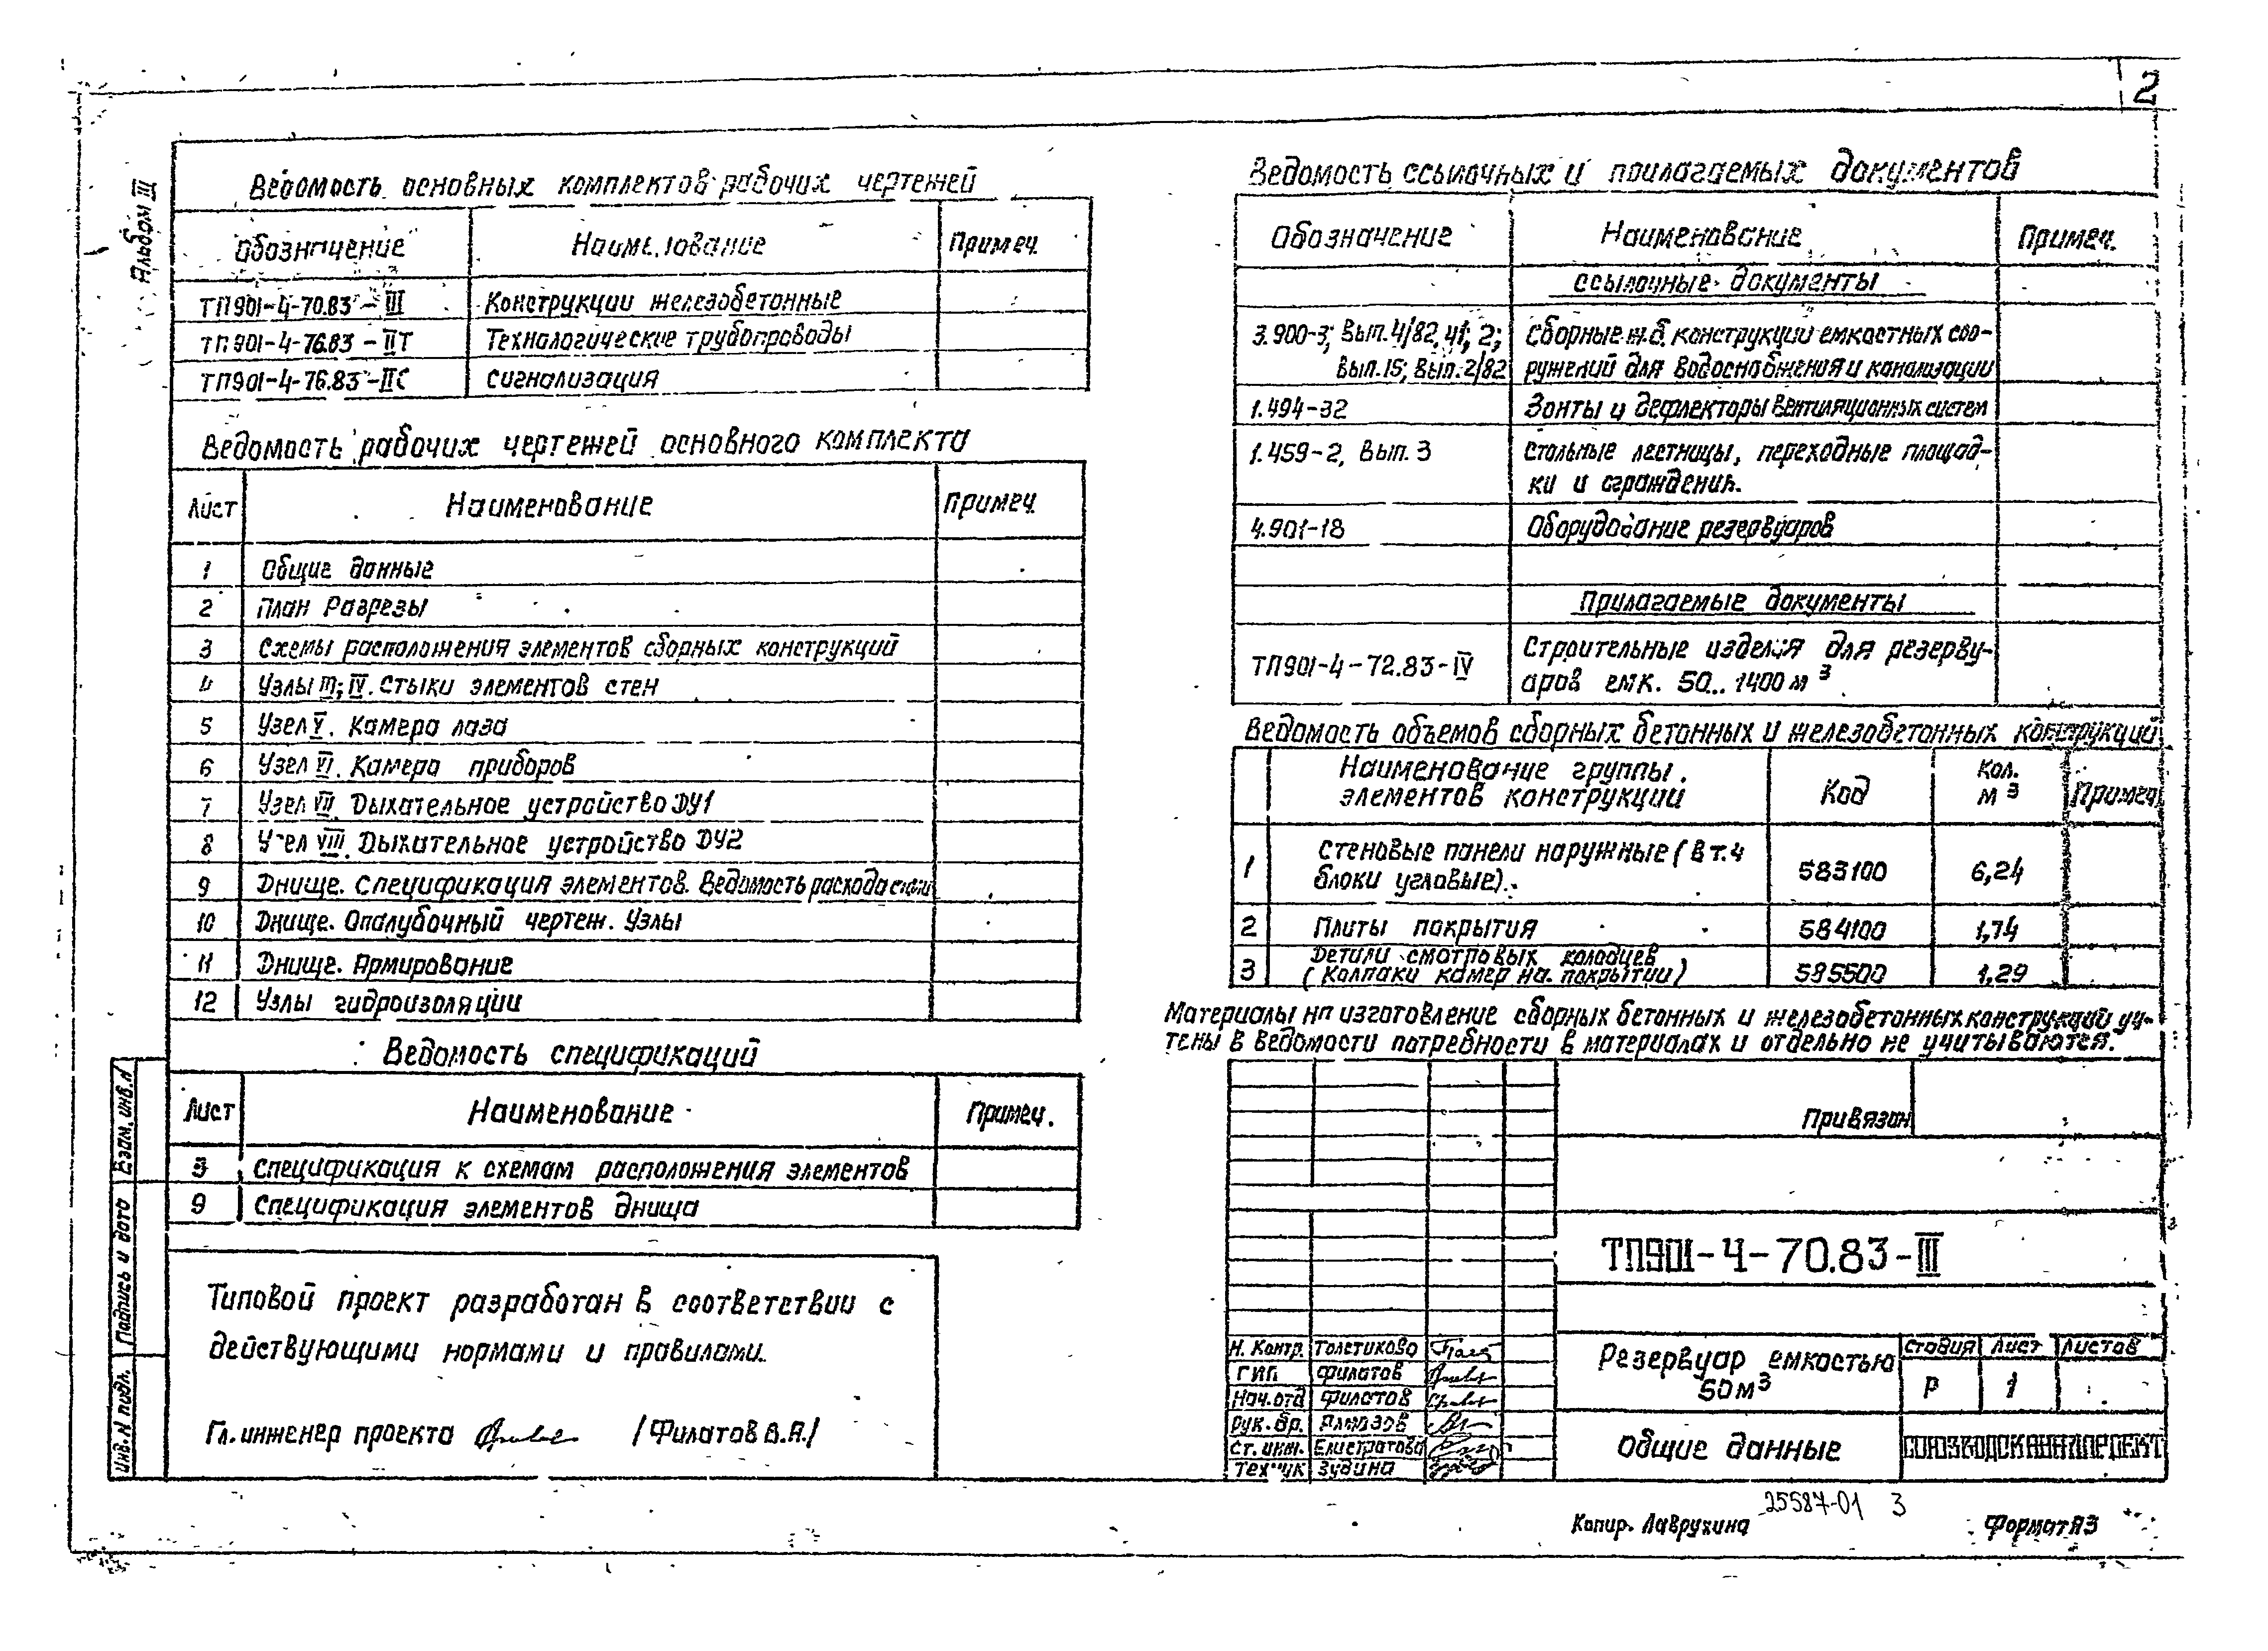 2
Альбом III
Ведомость основных комплектов рабочих чертежей
Обозначение Наименование Примеч.
ТП901-4-70.83-III Конструкции железобетонные
ТП901-4-76.83-IIТ Технологические трубопроводы
ТП901-4-76.83-IIС Сигнализация
Ведомость рабочих чертежей основного комплекта
Лист Наименование Примеч.
1 Общие данные
2 План Разрезы
3 Схемы расположения элементов сборных конструкций
4 Узлы III; IV. Стыки элементов стен
5 Узел V. Камера лаза
6 Узел VI. Камера приборов
7 Узел VII. Дыхательное устройство ДУ1
8 Узел VIII. Дыхательное устройство ДУ2
9 Днище. Спецификация элементов. Ведомость расхода стали
10 Днище. Опалубочный чертеж. Узлы
11 Днище. Армирование
12 Узлы гидроизоляции
Ведомость спецификаций
Лист Наименование Примеч.
3 Спецификация к схемам расположения элементов
9 Спецификация элементов днища
Типовой проект разработан в соответствии с
действующими нормами и правилами.
Гл. инженер проекта /Филатов В.А./
Взам. инв. N
Подпись и дата
Инв. N подл.
Ведомость ссылочных и прилагаемых документов
Обозначение Наименование Примеч.
Ссылочные документы
3.900-3; Вып. 4/82, ч1; 2; Сборные ж.б. конструкции емкостных соо-
Вып. 15; Вып. 2/82 ружений для водоснабжения и канализации
1.494-32 Зонты и дефлекторы вентиляционных систем
1.459-2, Вып. 3 Стальные лестницы, переходные площад-
ки и ограждения.
4.901-18 Оборудование резервуаров
Прилагаемые документы
ТП901-4-72.83-IV Строительные изделия для резерву-
аров емк. 50..1400 м³
Ведомость объемов сборных бетонных и железобетонных конструкций
Наименование группы элементов конструкции Код Кол. м³ Примеч.
1 Стеновые панели наружные (в т.ч
блоки угловые). 583100 6,24
2 Плиты покрытия 584100 1,74
3 Детали смотровых колодцев
(Колпаки камер на покрытии) 585500 1,29
Материалы на изготовление сборных бетонных и железобетонных конструкций уч-
тены в ведомости потребности в материалах и отдельно не учитываются.
Привязан
ТП901-4-70.83-III
Н. Контр. Толстикова
ГИП Филатов
Нач. отд Филатов
Рук. бр. Алмазов
Ст. инж. Елистратова
Техник Зудина
Резервуар емкостью
50 м³
Стадия Лист Листов
Р 1
Общие данные
СОЮЗВОДОКАНАЛПРОЕКТ
25587-01 3
Копир. Лаврухина Формат А3